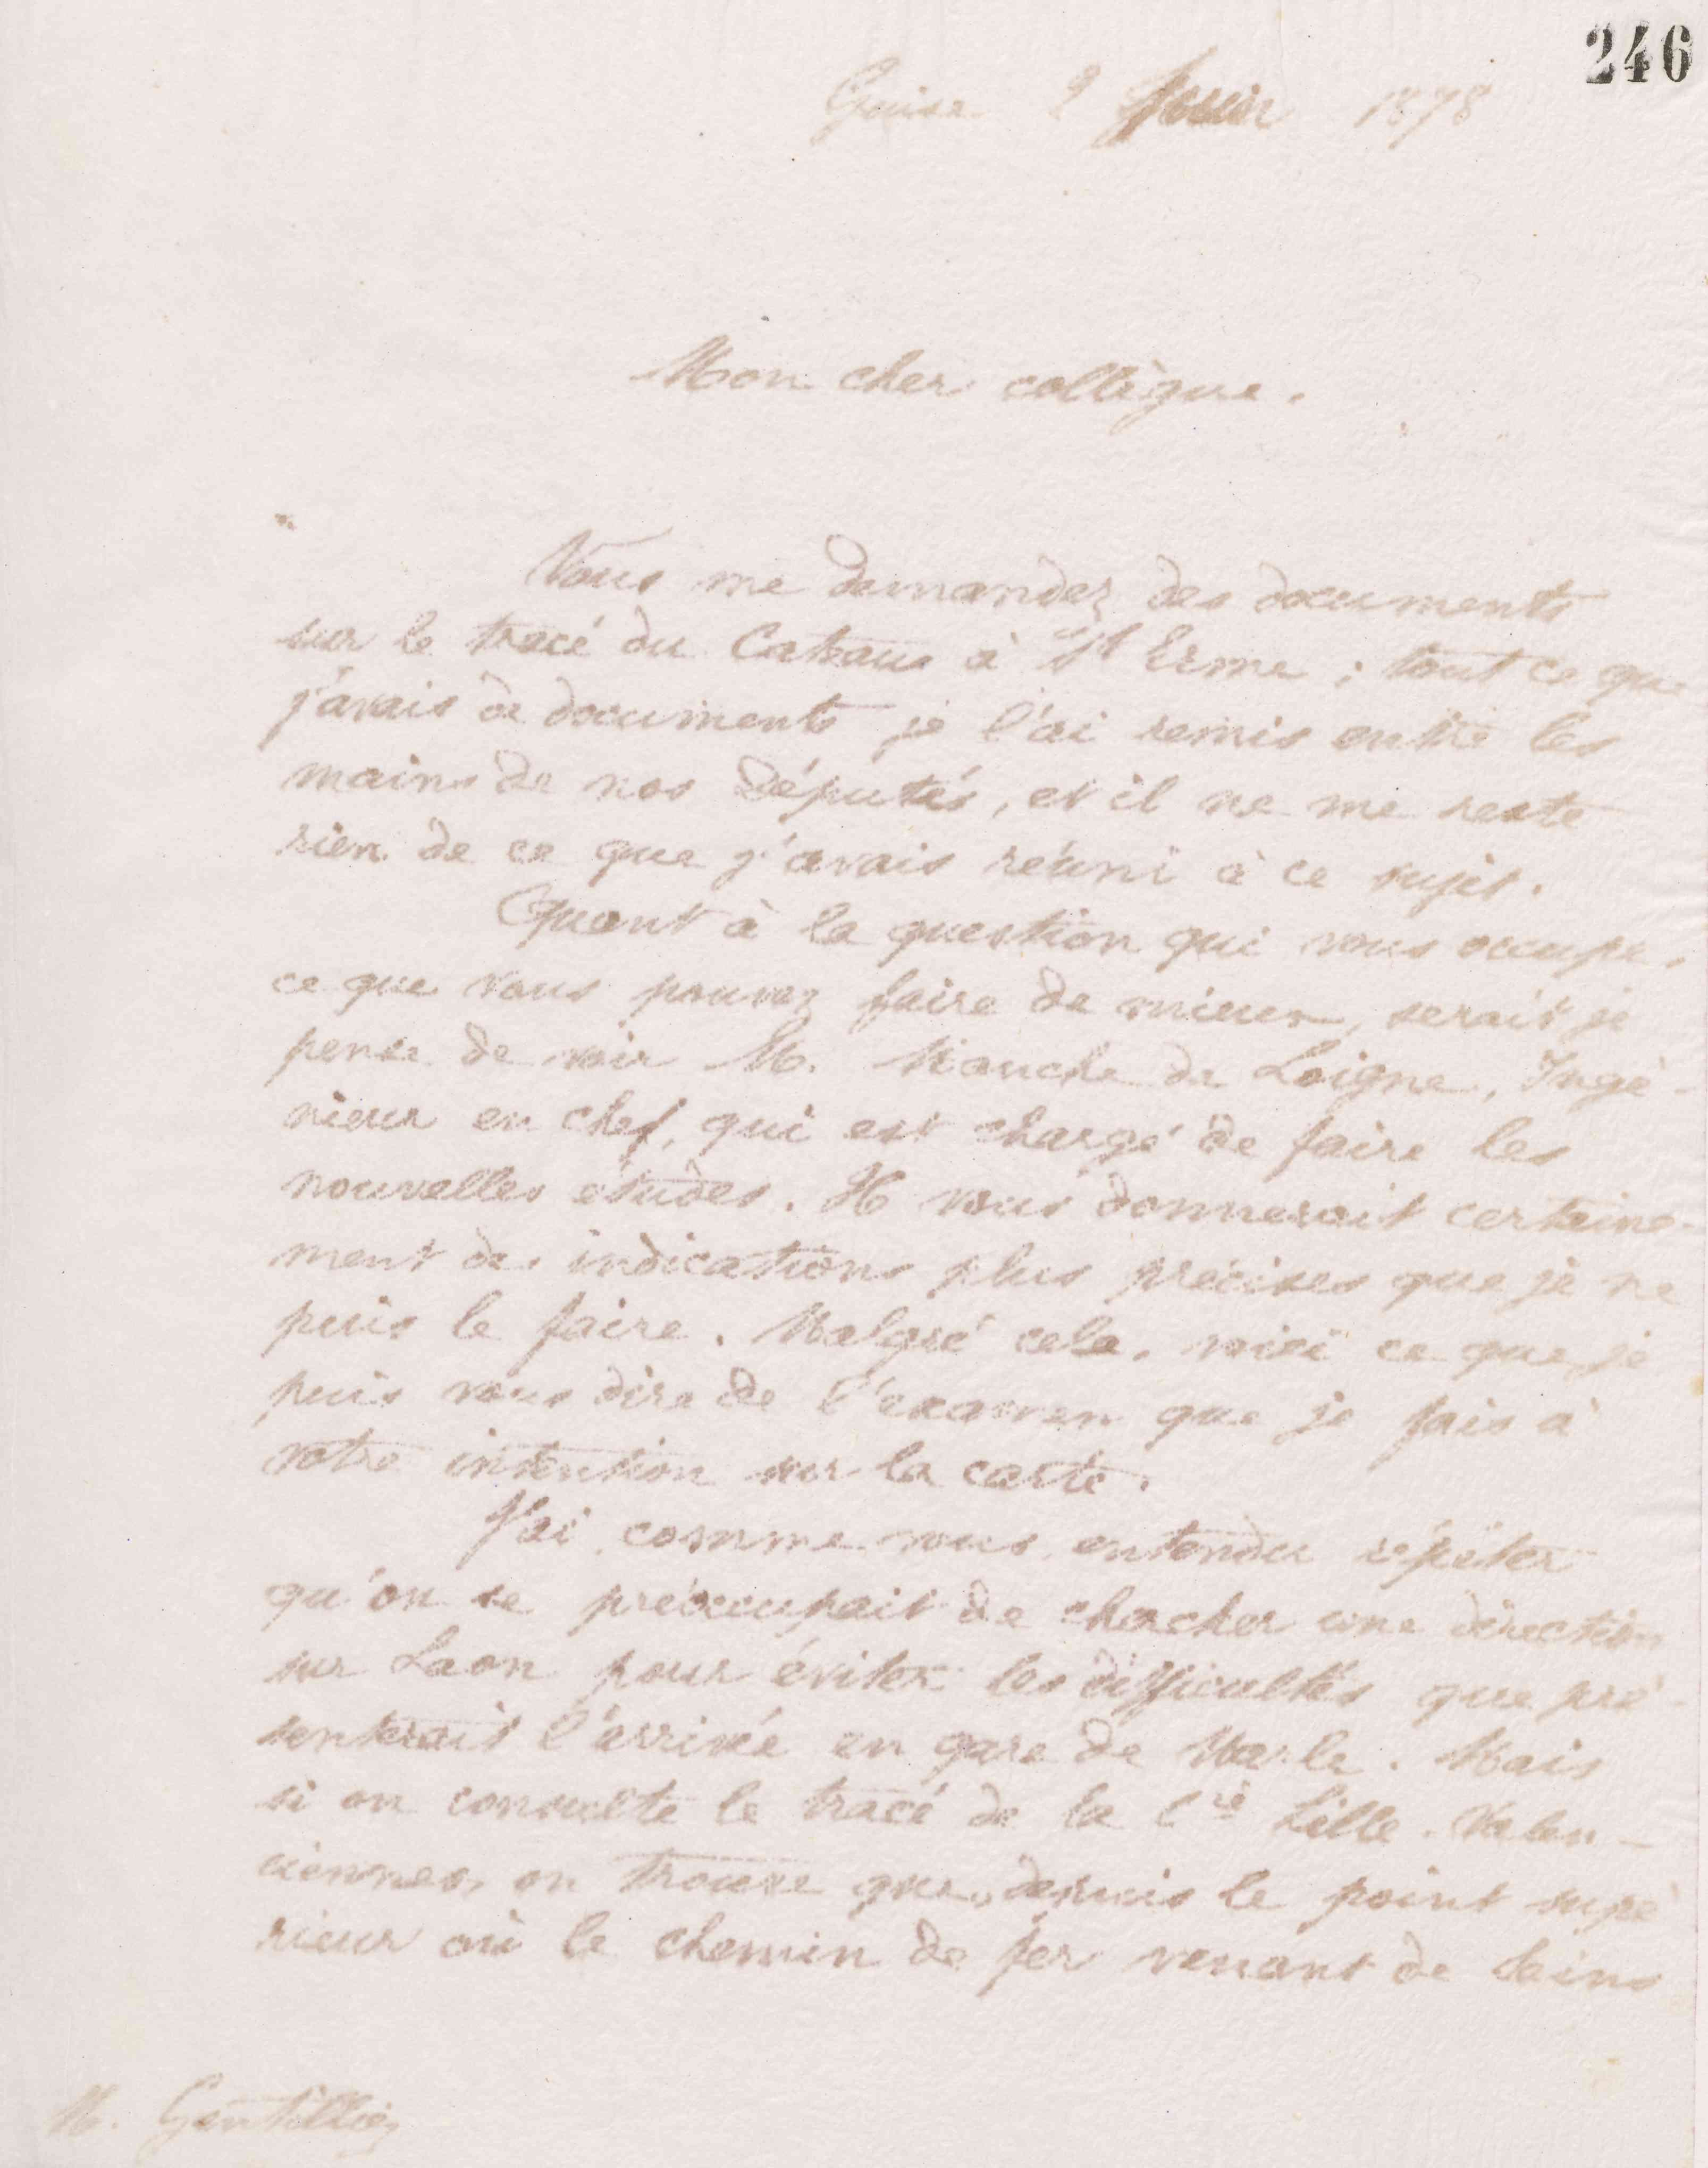 246
Guise 2 février 1878
Mon cher collègue.
Vous me demandez des documents
sur le tracé du Cateau à St Erme ; tout ce que
j'avais de documents je l'ai remis entre les
mains de nos députés, et il ne me reste
rien de ce que j'avais réuni à ce sujet.
Quant à la question qui vous occupe,
ce que vous pouvez faire de mieux, serait je
pense de voir M. de Loigne, Ingé-
nieur en chef, qui est chargé de faire les
nouvelles études. Il vous donnerait certaine-
ment des indications plus précises que je ne
puis le faire. Malgré cela, voici ce que je
puis vous dire de l'examen que je fais à
votre intention sur la carte.
J'ai, comme vous, entendu répéter
qu'on se préoccupait de chercher une direction
sur Laon pour éviter les difficultés que pré-
senterait l'arrivée en gare de Marle. Mais
si on consulte le tracé de la Cie Lille-Valen-
ciennes, on trouve que, depuis le point supé
rieur où le chemin de fer venant de Sains
M. Gentilliez